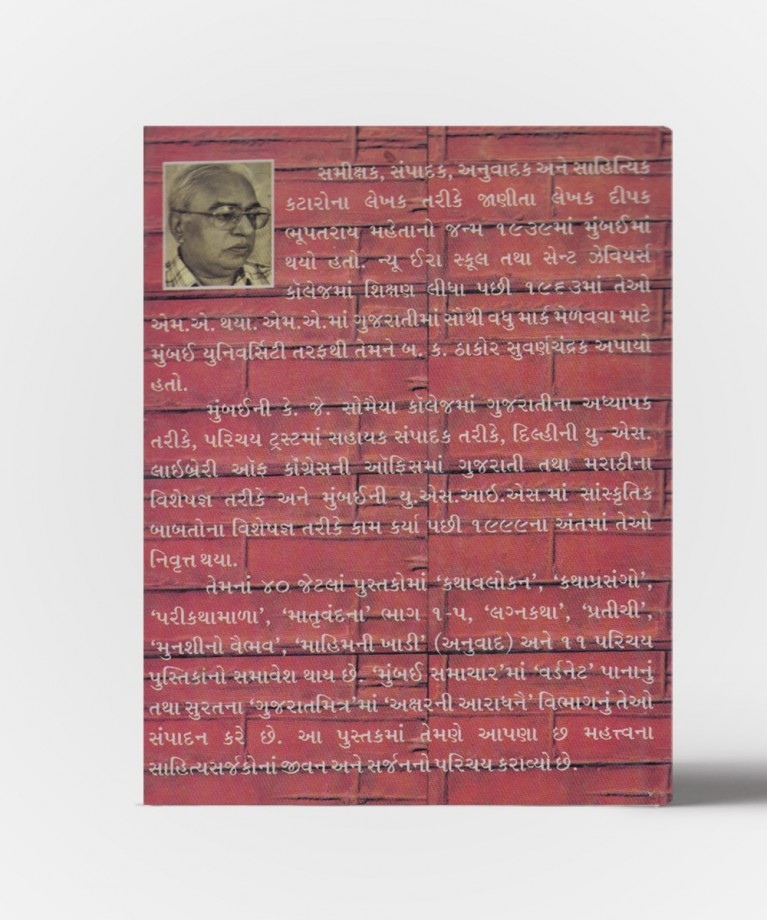 સમીક્ષક, સંપાદક, અનુવાદક અને સાહિત્યિક
કટારોના લેખક તરીકે જાણીતા લેખક દીપક
ભૂપતરાય મહેતાનો જન્મ ૧૯૩૯માં મુંબઈમાં
થયો હતો. ન્યૂ ઈરા સ્કૂલ તથા સેન્ટ ઝેવિયર્સ
કૉલેજમાં શિક્ષણ લીધા પછી ૧૯૬૩માં તેઓ
એમ.એ. થયા. એમ.એ.માં ગુજરાતીમાં સૌથી વધુ માર્ક મેળવવા માટે
મુંબઈ યુનિવર્સિટી તરફથી તેમને બ. ક. ઠાકોર સુવર્ણચંદ્રક અપાયો
હતો.
મુંબઈની કે. જે. સોમૈયા કૉલેજમાં ગુજરાતીના અધ્યાપક
તરીકે, પરિચય ટ્રસ્ટમાં સહાયક સંપાદક તરીકે, દિલ્હીની યુ. એસ.
લાઈબ્રેરી ઑફ કાંગ્રેસની ઑફિસમાં ગુજરાતી તથા મરાઠીના
વિશેષજ્ઞ તરીકે અને મુંબઈની યુ.એસ.આઇ.એસ.માં સાંસ્કૃતિક
બાબતોના વિશેષજ્ઞ તરીકે કામ કર્યા પછી ૧૯૯૯ના અંતમાં તેઓ
નિવૃત્ત થયા.
તેમનાં ૪૦ જેટલાં પુસ્તકોમાં ‘કથાવલોકન’, ‘કથાપ્રસંગો’,
‘પરીકથામાળા’, ‘માતૃવંદના’ ભાગ ૧-૫, ‘લગ્નકથા’, ‘પ્રતીચી’,
‘મુનશીનો વૈભવ’, ‘માહિમની ખાડી’ (અનુવાદ) અને ૧૧ પરિચય
પુસ્તિકાંનો સમાવેશ થાય છે. ‘મુંબઈ સમાચાર’માં ‘વર્ડનેટ’ પાનાનું
તથા સુરતના ‘ગુજરાતમિત્ર’માં ‘અક્ષરની આરાધના’ વિભાગનું તેઓ
સંપાદન કરે છે. આ પુસ્તકમાં તેમણે આપણા છ મહત્ત્વના
સાહિત્યસર્જકોનાં જીવન અને સર્જનનો પરિચય કરાવ્યો છે.